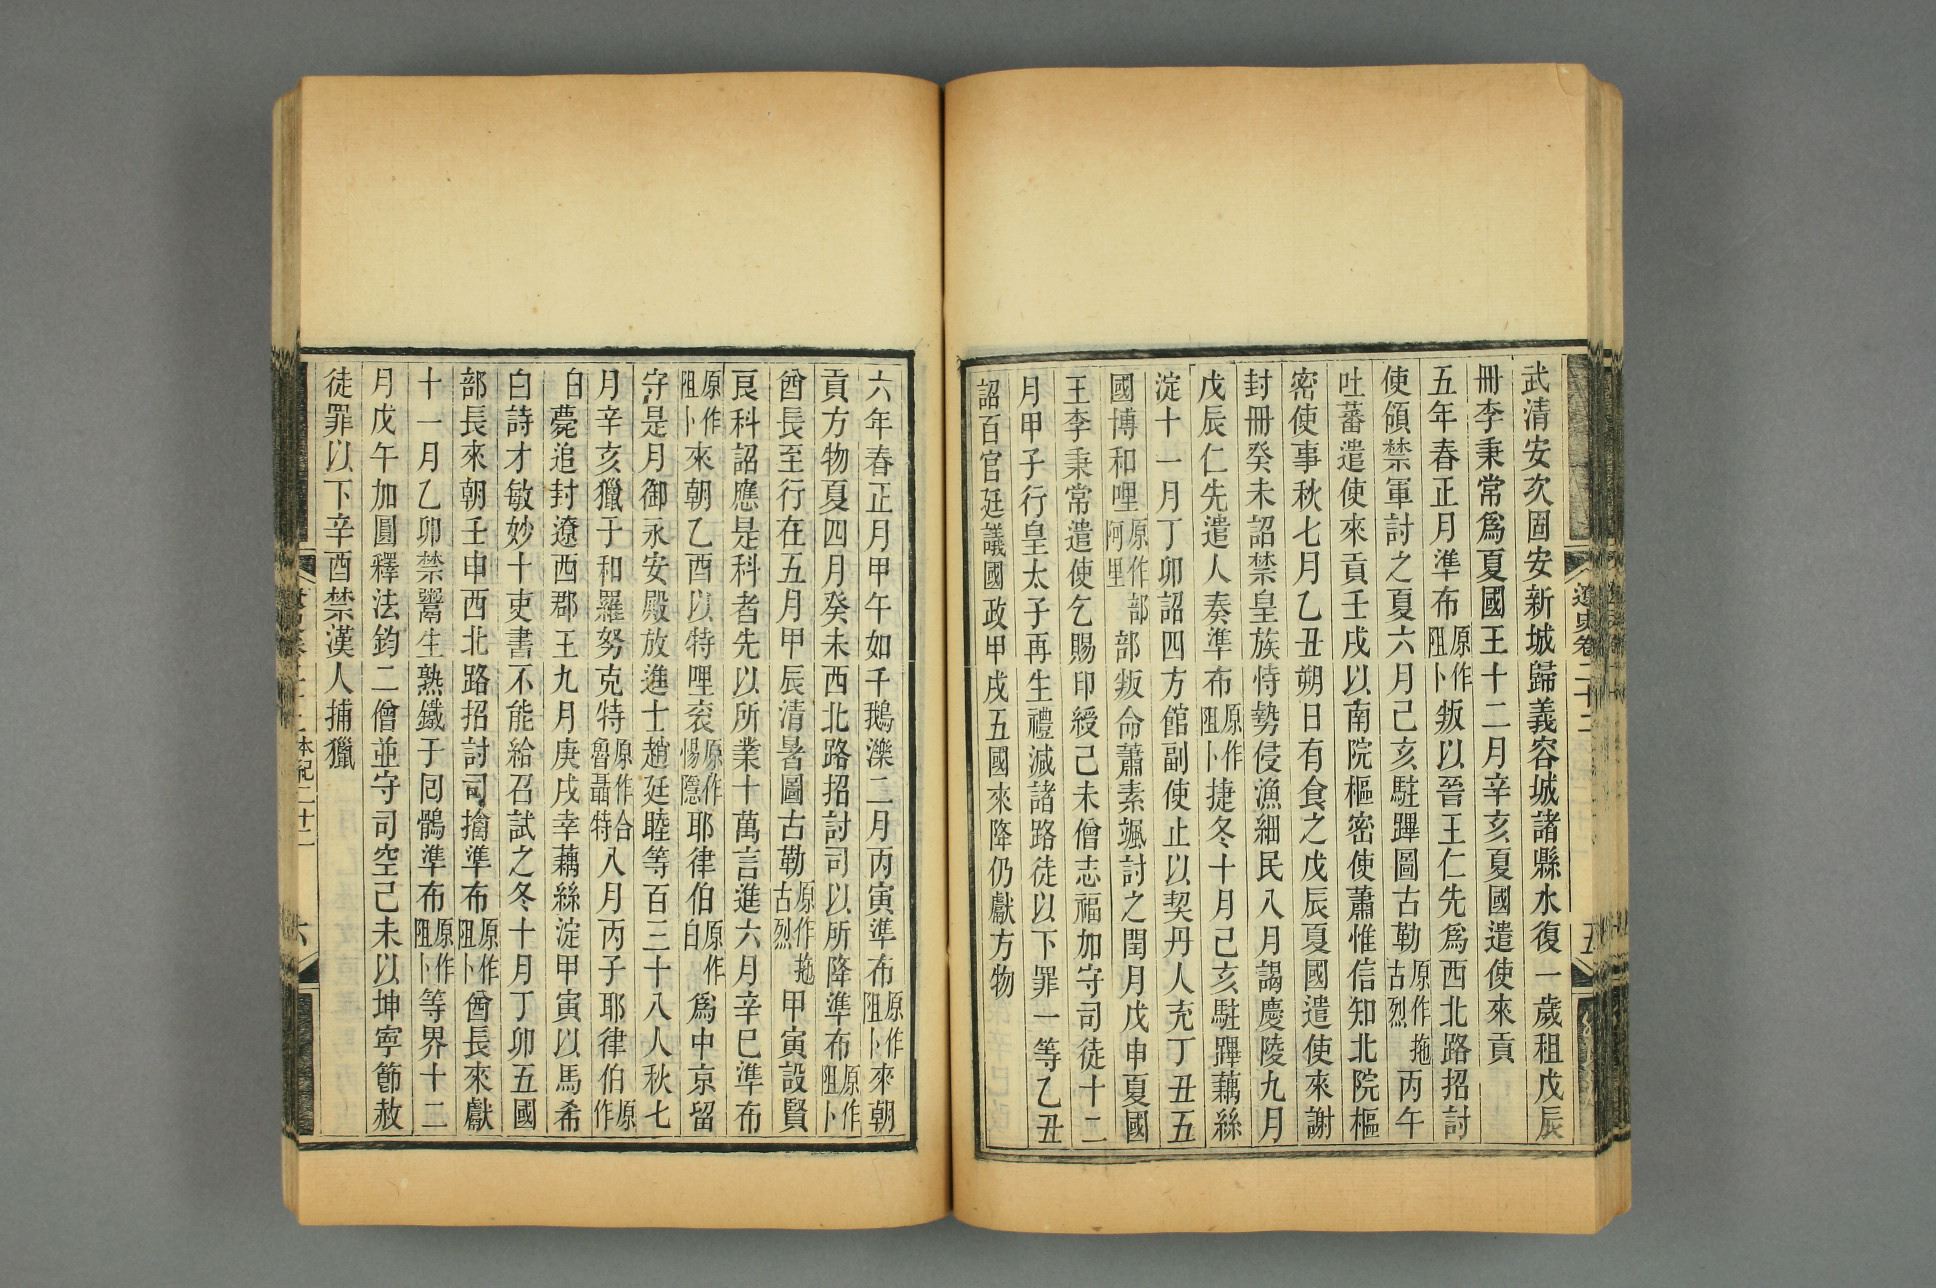 武清安次固安新城歸義容城諸縣水復一歲租戊辰
冊李秉常爲夏國王十二月辛亥夏國遣使來貢
五年春正月準布原作阻卜叛以晉王仁先爲西北路招討
使領禁軍討之夏六月己亥駐蹕圖古勒原作拖古烈丙午
吐蕃遣使來貢壬戌以南院樞密使蕭惟信知北院樞
密使事秋七月乙丑朔日有食之戊辰夏國遣使來謝
封冊癸未詔禁皇族恃勢侵漁細民八月謁慶陵九月
戊辰仁先遣人奏準布原作阻卜捷冬十月己亥駐蹕藕絲
淀十一月丁卯詔四方館副使止以契丹人充丁丑五
國博和哩原作部阿里部叛命蕭素颯討之閏月戊申夏國
王李秉常遣使乞賜印綬己未僧志福加守司徒十二
月甲子行皇太子再生禮減諸路徒以下罪一等乙丑
詔百官廷議國政甲戌五國來降仍獻方物
遼史卷二十二
五
六年春正月甲午如千鵝濼二月丙寅準布原作阻卜來朝
貢方物夏四月癸未西北路招討司以所降準布原作阻卜
酋長至行在五月甲辰清暑圖古勒原作拖古烈甲寅設賢
良科詔應是科者先以所業十萬言進六月辛巳準布
原作阻卜來朝乙酉以特哩衮原作惕隱耶律伯原作白爲中京留
守是月御永安殿放進士趙廷睦等百三十八人秋七
月辛亥獵于和羅努克特原作合魯聶特八月丙子耶律伯原作
白薨追封遼西郡王九月庚戌幸藕絲淀甲寅以馬希
白詩才敏妙十吏書不能給召試之冬十月丁卯五國
部長來朝壬申西北路招討司擒準布原作阻卜酋長來獻
十一月乙卯禁鬻生熟鐵于回鶻準布原作阻卜等界十二
月戊午加圓釋法鈞二僧並守司空己未以坤寧節赦
徒罪以下辛酉禁漢人捕獵
本紀二十二
六